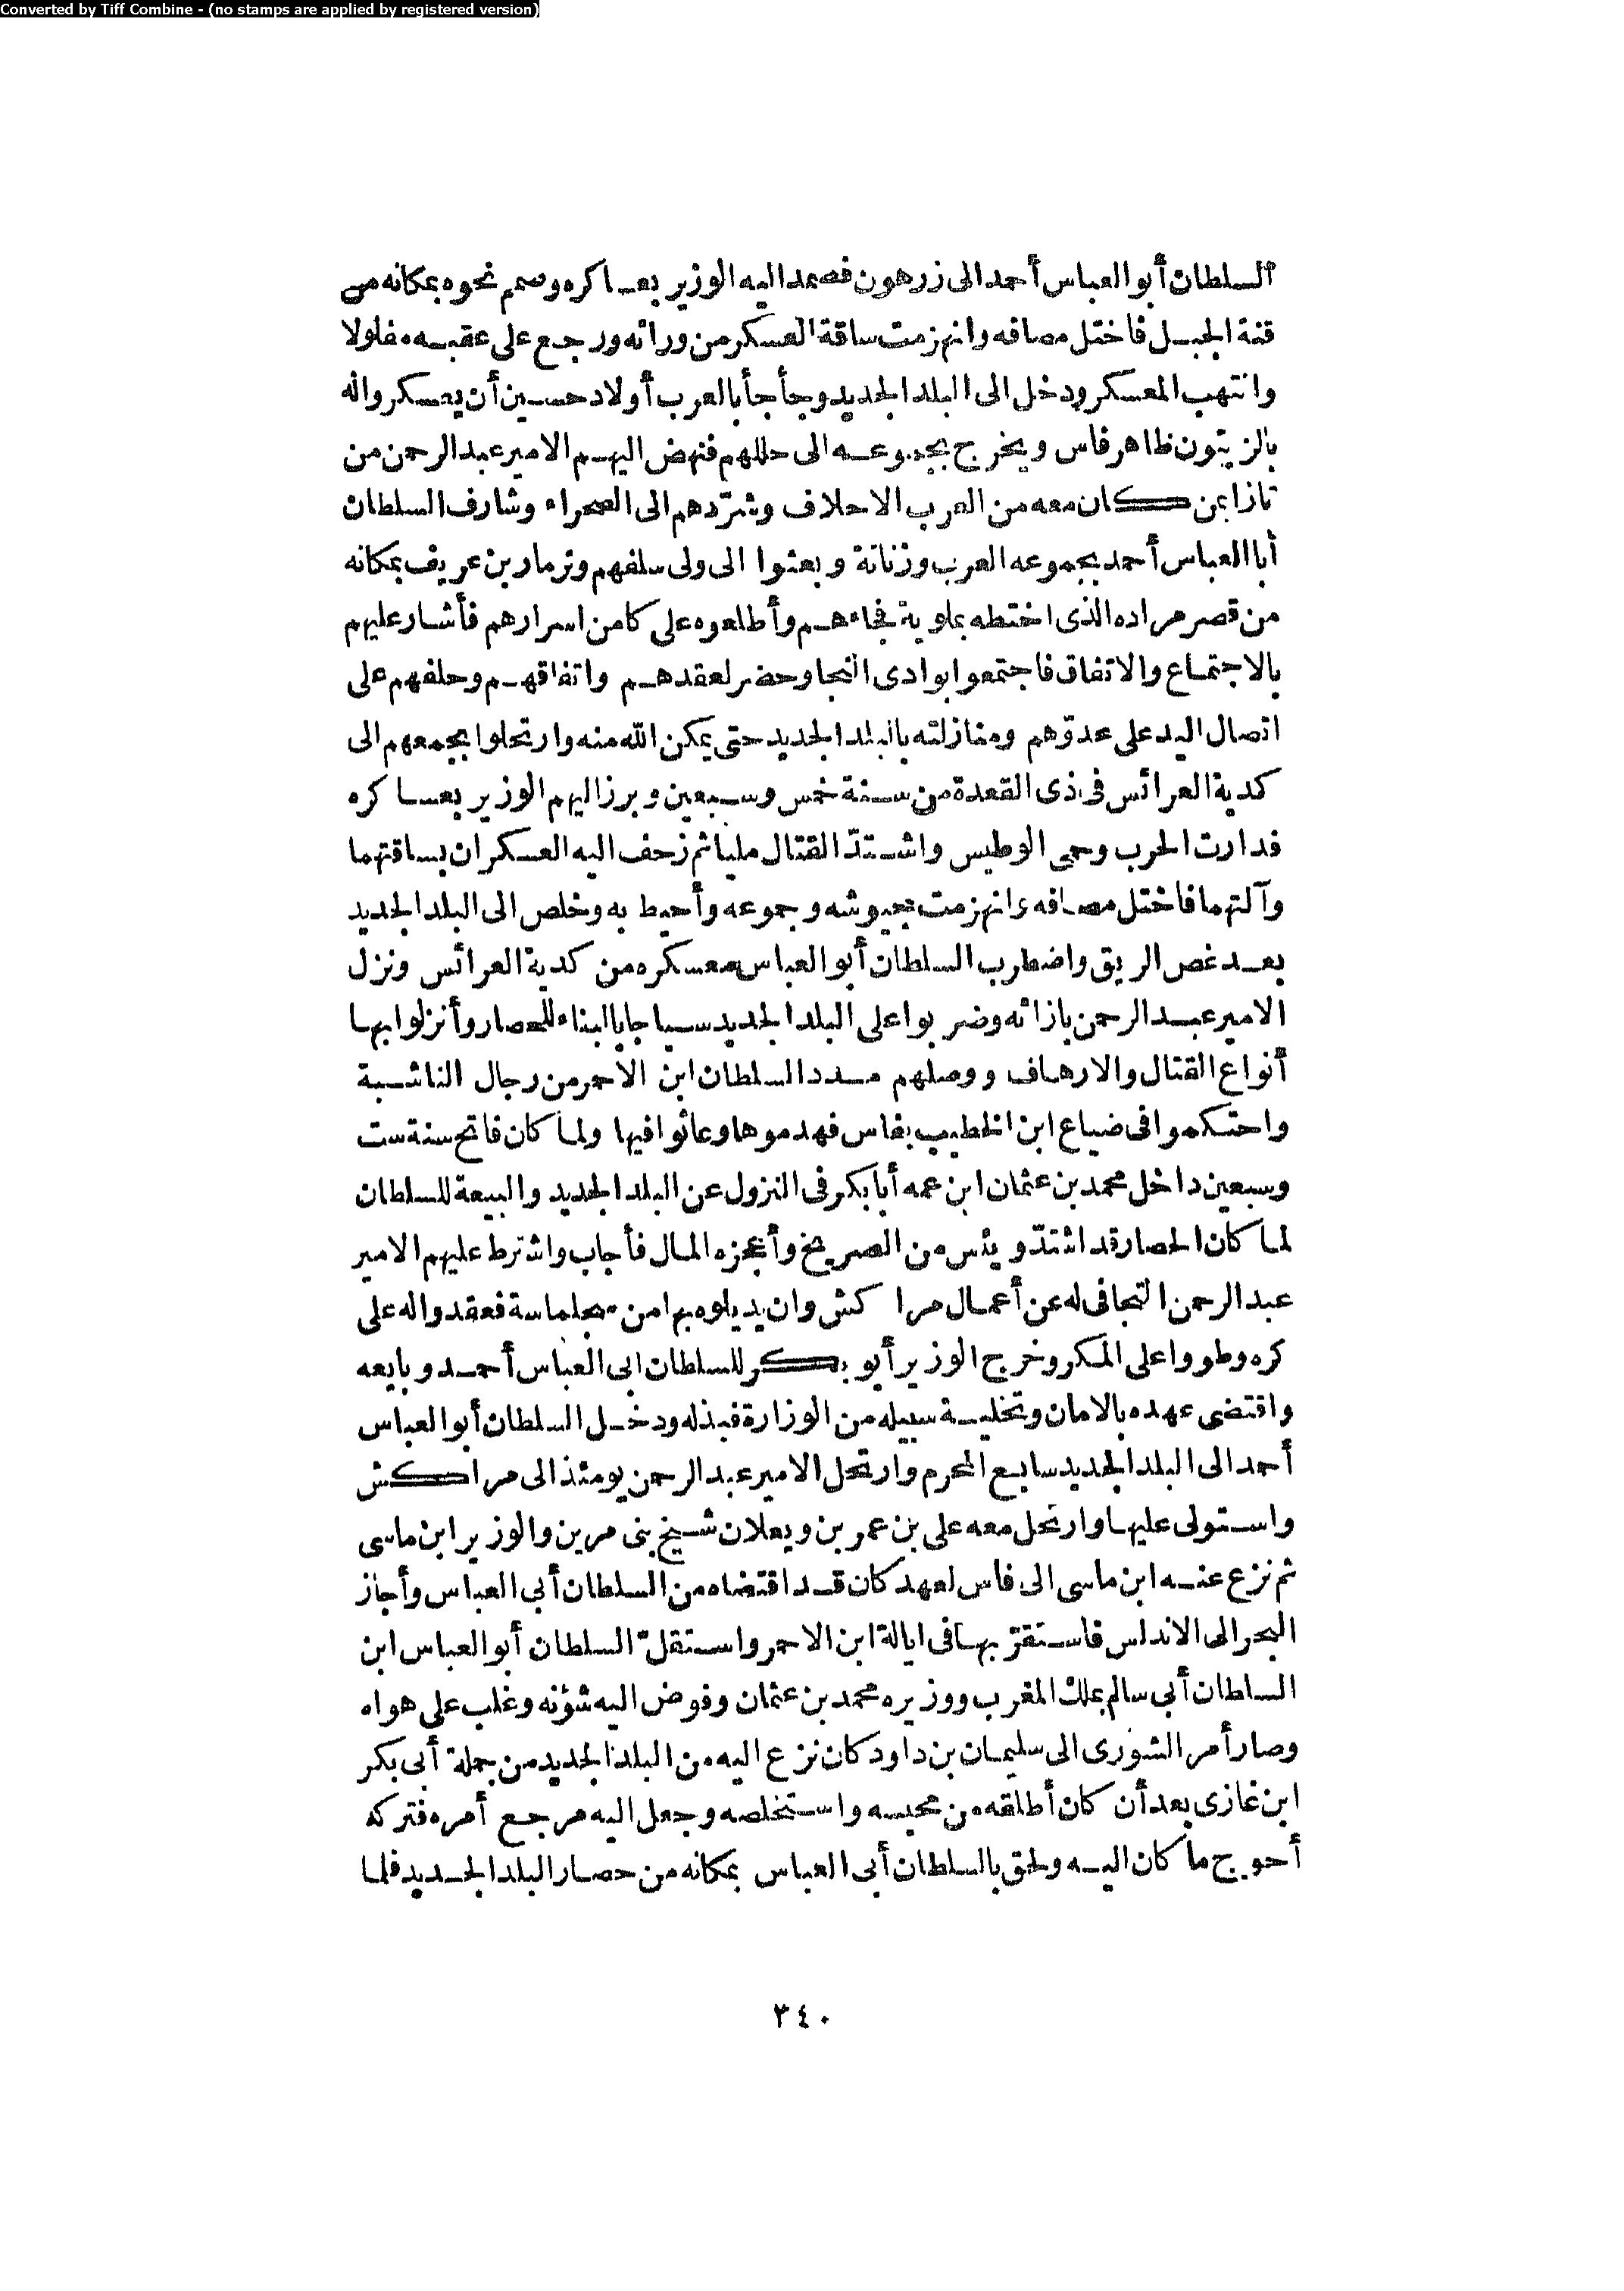 Converted by Tiff Combine - (no stamps are applied by registered version)
السلطان أبو العباس أحمد الى زرهون فصمد اليه الوزير بعساكره وصمم نحوه بمكانه من
قنة الجبل فاختل مصافه وانهزمت ساقة العسكر من ورائه ورجع على عقبه مفلولا
وانتهب المعسكر ودخل الى البلد الجديد وجأجأ بالعرب أولاد حسين أن يعسكروا له
بالزيتون ظاهر فاس ويخرج بجموعه الى حللهم فنهض اليهم الامير عبد الرحمن من
تازا بمن كان معه من العرب الاحلاف وشرّدهم الى الصحراء وشارف السلطان
أبا العباس أحمد بجموعه العرب وزناتة وبعثوا الى ولى سلفهم ونزمار بن عريف بمكانه
من قصر مراده الذى اختطه بملوية فجاءهم وأطلعوه على كامن اسرارهم فأشار عليهم
بالاجتماع والاتفاق فاجتمعوا بوادى النجا وحضر لعقدهم واتفاقهم وحلفهم على
اتصال اليد على عدوّهم ومنازلته بالبلد الجديد حتى يمكن الله منه وارتحلوا بجمعهم الى
كدية العرائس فى ذى القعدة من سنة خمس وسبعين وبرز اليهم الوزير بعساكره
فدارت الحرب وحمى الوطيس واشتدّ القتال مليا ثم زحف اليه العسكران بساقتهما
وآلتهما فاختل مصافه وانهزمت جيوشه وجموعه وأحيط به وخلص الى البلد الجديد
بعد غص الريق واضطرب السلطان أبو العباس معسكره من كدية العرائس ونزل
الامير عبد الرحمن بازائه وضربوا على البلد الجديد سياجا بالبناء للحصار وأنزلوا بها
أنواع القتال والارهاف ووصلهم مدد السلطان ابن الأحمر من رجال الناشبة
واحتكموا فى ضياع ابن الخطيب بفاس فهدموها وعاثوا فيها ولما كان فاتح سنة ست
وسبعين داخل محمد بن عثمان ابن عمه أبا بكر فى النزول عن البلد الجديد والبيعة للسلطان
لما كان الحصار قد اشتدّ ويئس من الصريخ وأعجزه المال فأجاب واشترط عليهم الامير
عبد الرحمن التجافى له عن أعمال مراكش وان يديلوه بها من سجلماسة فعقدوا له على
كره وطووا على المكر وخرج الوزير أبو بكر للسلطان ابى العباس أحمد وبايعه
واقتضى عهده بالامان وتخلية سبيله من الوزارة فبذله ودخل السلطان أبو العباس
أحمد الى البلد الجديد سابع المحرم وارتحل الامير عبد الرحمن يومئذ الى مراكش
واستولى عليها وارتحل معه على بن عمر بن ويعلان شيخ بنى مرين والوزير ابن ماسى
ثم نزع عنه ابن ماسى الى فاس لعهد كان قد اقتضاه من السلطان أبي العباس وأجاز
البحر الى الاندلس فاستقرّ بها فى ايالة ابن الاحمر واستقلّ السلطان أبو العباس ابن
السلطان أبى سالم بملك المغرب ووزيره محمد بن عثمان وفوض اليه شؤنه وغلب على هواه
وصار أمر الشورى الى سليمان بن داود كان نزع اليه من البلد الجديد من جملة أبى بكر
ابن غازى بعد أن كان أطلقه من محبسه واستخلصه وجعل اليه مرجع أمره فتركه
أحوج ما كان اليه ولحق بالسلطان أبى العباس بمكانه من حصار البلد الجديد فلما
٣٤٠